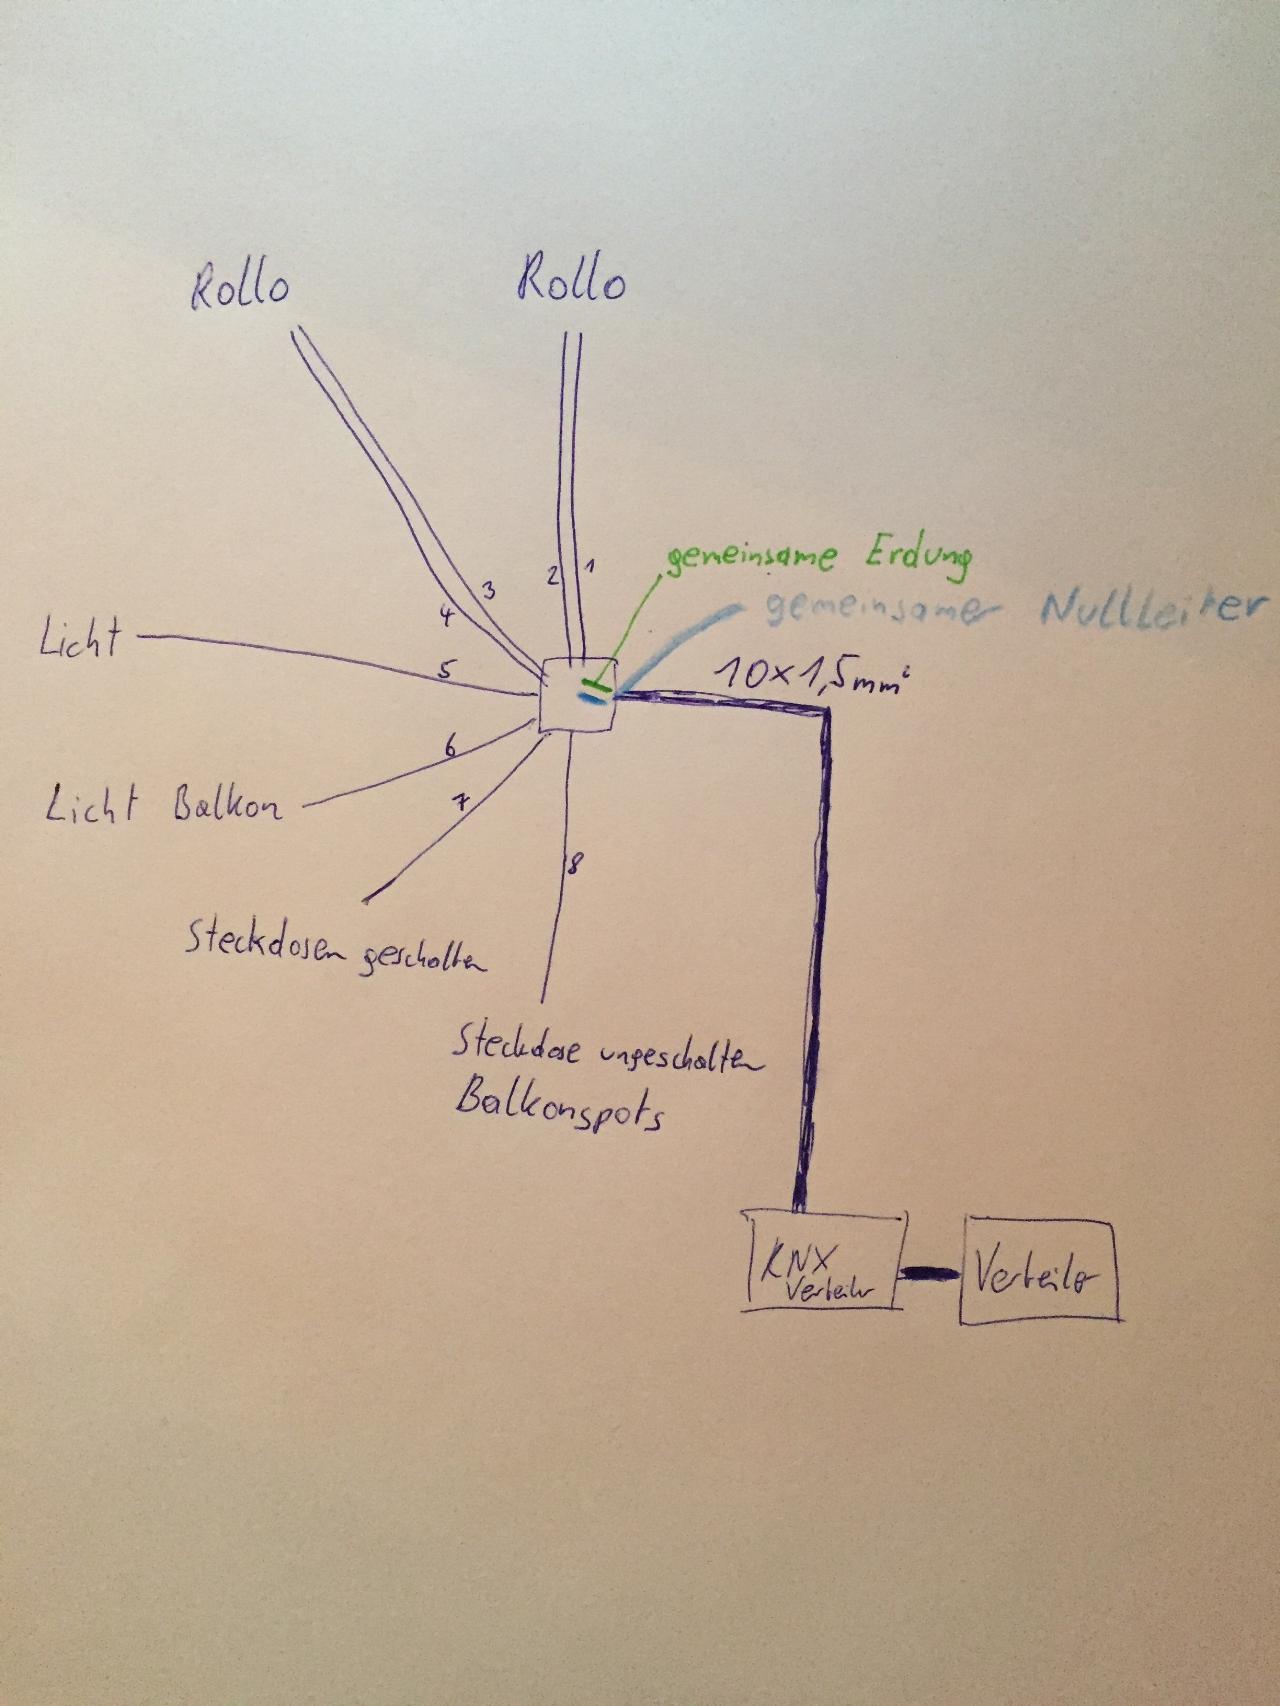 Rollo
Rollo
gemeinsame Erdung
gemeinsamer Nullleiter
10x1,5mm²
1
2
3
4
Licht
5
6
Licht Balkon
7
8
Steckdosen geschalten
Steckdose ungeschalten
Balkonspots
KNX
Verteiler
Verteiler